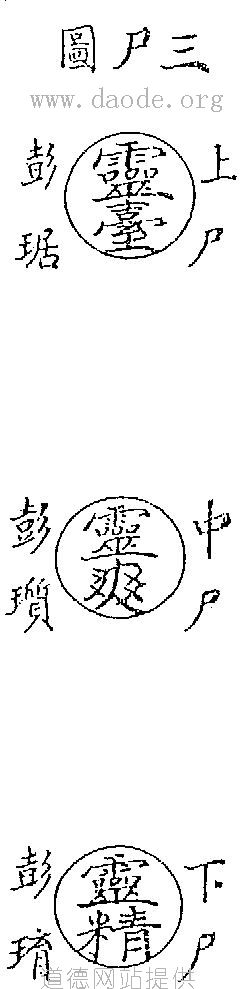 三尸圖
www.daode.org
上尸
靈臺
彭琚
中尸
靈爽
彭瓆
下尸
靈精
彭琦
道德网站提供